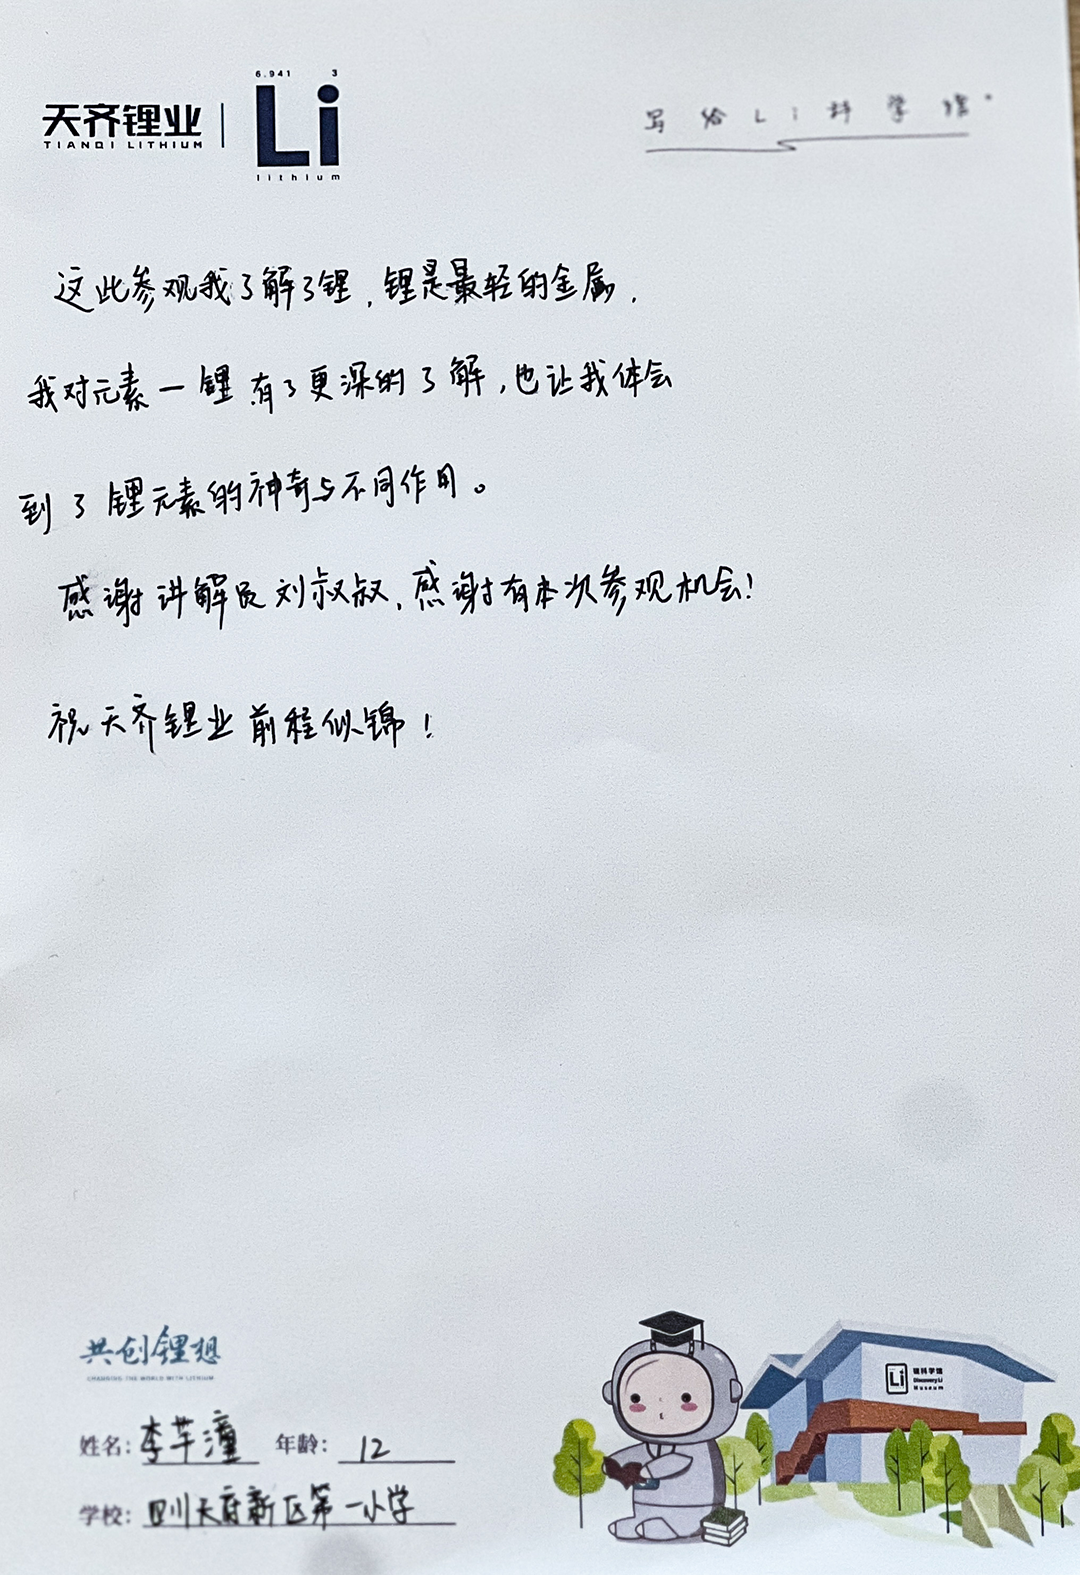 6.941 3
天齐锂业 Li
TIANQI LITHIUM
lithium
写给Li科学馆。
这此参观我了解了锂,锂是最轻的金属,
我对元素一锂有了更深的了解,也让我体会
到了锂元素的神奇与不同作用。
感谢讲解员刘叔叔,感谢有本次参观机会!
祝天齐锂业前程似锦!
共创锂想
CHANGING THE WORLD WITH LITHIUM
姓名:李芊潼 年龄:12
学校:四川天府新区第一小学
Li 锂科学馆
Discovery Li
Museum